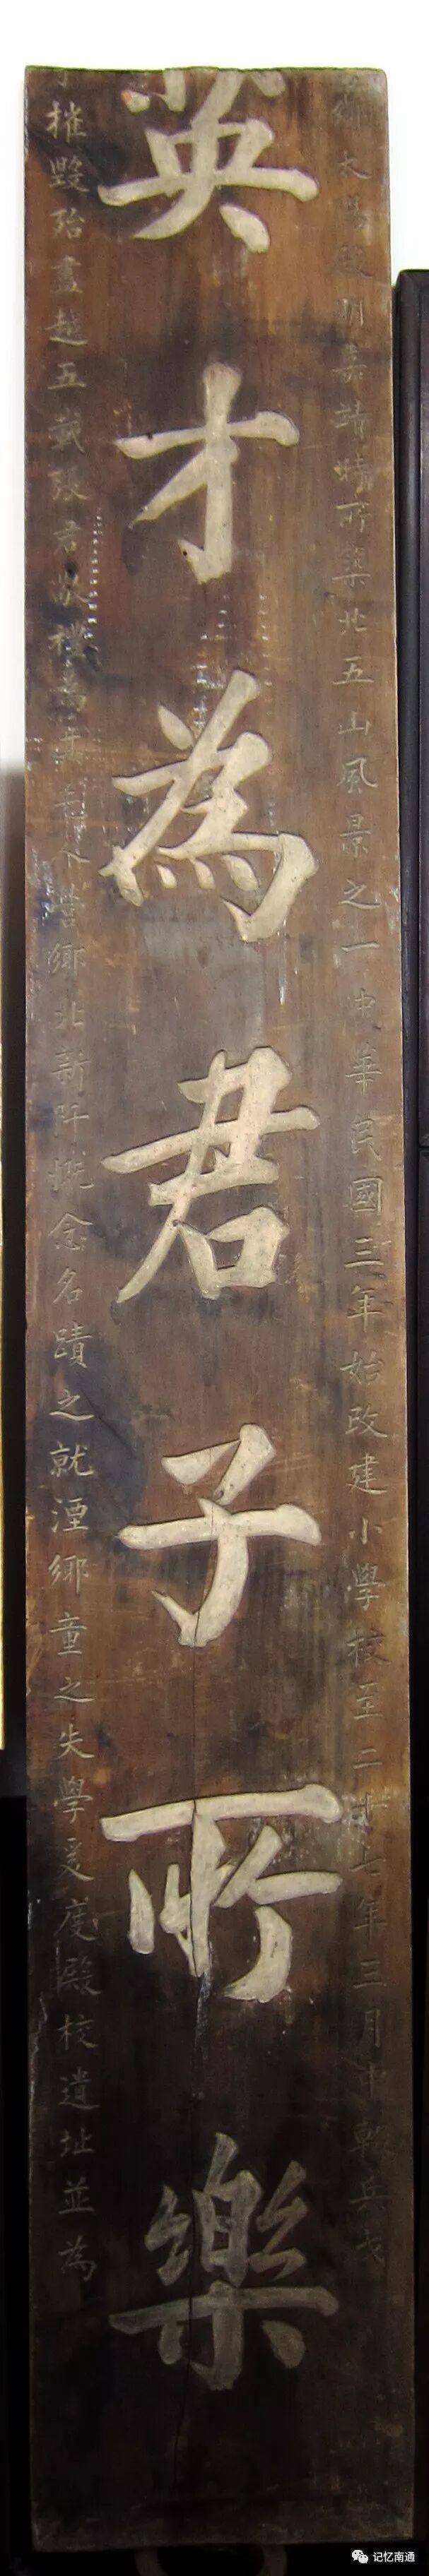 太陽殿明嘉靖時所築北五山風景之一中華民國三年始改建小學校至二十七年三月中
英才為君子所樂
摧毀殆盡越五載張君敬禮為
營鄉北新阡慨念名蹟之就湮鄉童之失學爰度殿校遺址並為
记忆南通